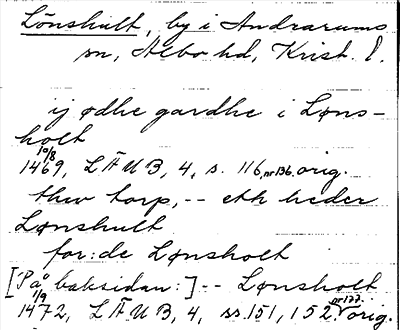 Lönshult, by i Andrarums
sn, Albo hd, Krist. l.
ij ødhe gardhe i Løns-
holt
10/8
1469, LÄUB, 4, s. 116, nr 136, orig.
thew torp, -- eth heder
Lønshult
for:de Lønsholt
[På baksidan:] -- Lønsholt
1/9 nr 177.
1472, LÄUB, 4, ss. 151, 152. orig.